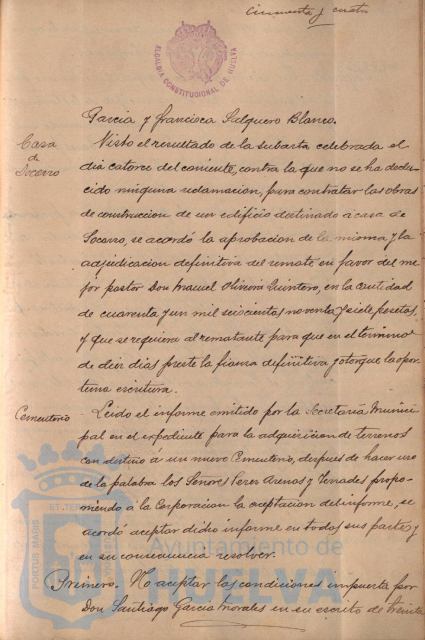 cincuenta y cuatro
ALCALDIA CONSTITUCIONAL DE HUELVA
Garcia y Francisca Salguero Blanco.
Casa de Socorro
Visto el resultado de la subasta celebrada el
dia catorce del corriente, contra la que no se ha dedu-
cido ninguna reclamacion, para contratar las obras
de construccion de un edificio destinado á casa de
Socorro, se acordó la aprobacion de la misma y la
adjudicacion definitiva del remate en favor del me-
jor postor Don Manuel Oliveira Quintero, en la cantidad
de cuarenta y un mil seiscientas noventa y siete pesetas,
y que se requiera al rematante para que en el termino
de diez dias preste la fianza definitiva y otorgue la opor-
tuna escritura.
Cementerio
Leido el informe emitido por la Secretaria Munici-
pal en el expediente para la adquisicion de terrenos
con destino á un nuevo Cementerio, despues de hacer uso
de la palabra los Señores Perez Arenas y Terrades propo-
niendo a la Corporacion la aceptacion del informe, se
acordó aceptar dicho informe en todas sus partes y
en su consecuencia resolver.
Primero. No aceptar las condiciones impuesta por
Don Santiago Garcia Morales en su escrito de treinta
PORTUS MARIS
Ayuntamiento de
HUELVA